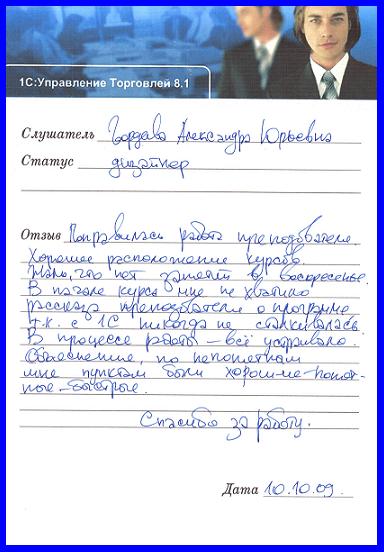 1С:Управление Торговлей 8.1
Слушатель Гордеева Александра Юрьевна
Статус дизайнер
Отзыв Понравилась работа преподавателя.
Хорошее расположение курсов.
Жаль, что нет занятий в воскресенье.
В начале курса мне не хватило
рассказа преподавателя о программе
т.к. с 1С никогда не сталкивалась.
В процессе работы – всё устраивало.
Объяснение по непонятным
мне пунктам были хорошие – понят-
ные – быстрые.
Спасибо за работу.
Дата 10.10.09.